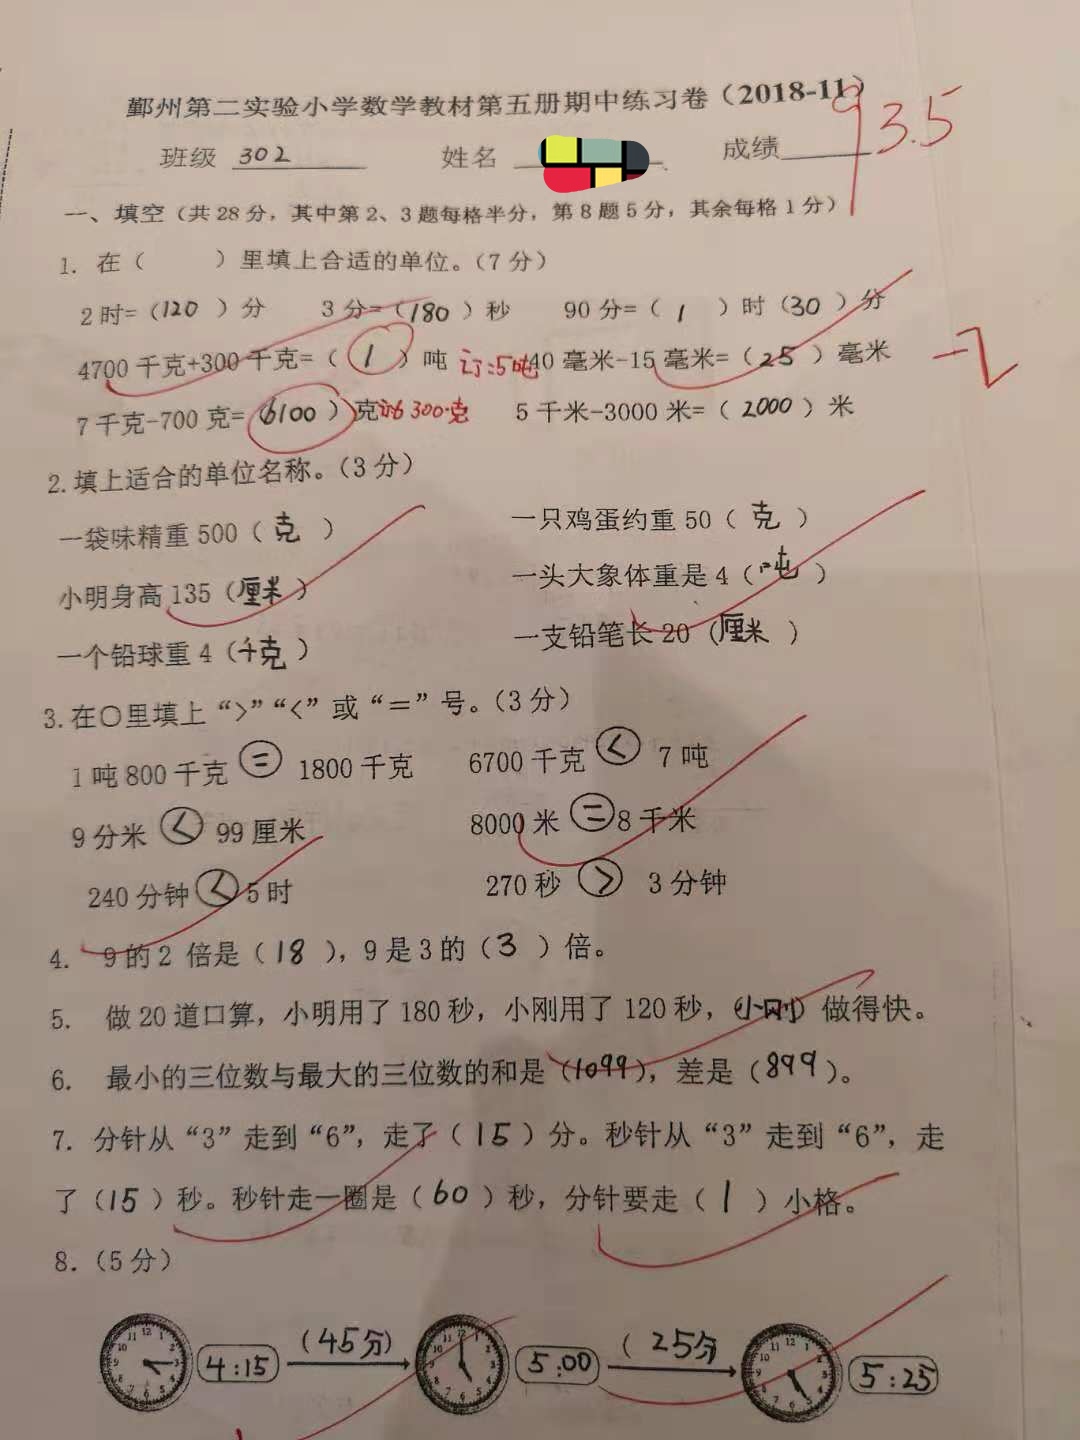 鄞州第二实验小学数学教材第五册期中练习卷（2018-11）
93.5
班级 302 姓名 成绩
一、填空（共28分，其中第2、3题每格半分，第8题5分，其余每格1分）
1. 在（ ）里填上合适的单位。（7分）
2时=（120 ）分 3分=（180 ）秒 90分=（ 1 ）时（30 ）分
4700千克+300千克=（ 1 ）吨 订:5吨 40毫米-15毫米=（ 25 ）毫米 -2
7千克-700克=（6100 ）克 订6300克 5千米-3000米=（ 2000 ）米
2.填上适合的单位名称。（3分）
一袋味精重500（ 克 ） 一只鸡蛋约重50（ 克 ）
小明身高135（厘米 ） 一头大象体重是4（吨 ）
一个铅球重4（千克 ） 一支铅笔长20（厘米 ）
3.在○里填上“>”“<”或“＝”号。（3分）
1吨800千克 = 1800千克 6700千克 < 7吨
9分米 < 99厘米 8000米 = 8千米
240分钟 < 5时 270秒 > 3分钟
4. 9的2倍是（ 18 ），9是3的（ 3 ）倍。
5. 做20道口算，小明用了180秒，小刚用了120秒，（小刚）做得快。
6. 最小的三位数与最大的三位数的和是（1099），差是（899）。
7. 分针从“3”走到“6”，走了（ 15 ）分。秒针从“3”走到“6”，走
了（15 ）秒。秒针走一圈是（ 60 ）秒，分针要走（ 1 ）小格。
8.（5分）
4:15 （45分） 5:00 （ 25分 5:25